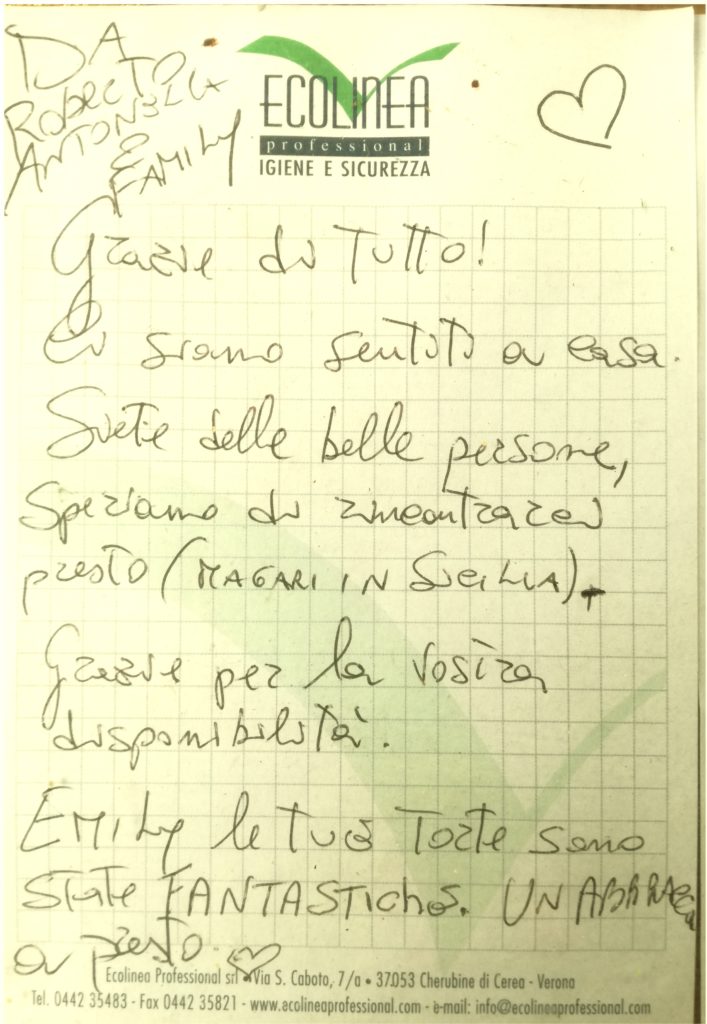 DA
ROBERTO
ANTONELLA
E
FAMILY
ECOLINEA
professional
IGIENE E SICUREZZA
Grazie di tutto!
Ci siamo sentiti a casa.
Siete delle belle persone,
Speriamo di rincontrarci
presto (MAGARI IN SICILIA).
Grazie per la vostra
disponibilità.
EMILY le tue torte sono
state FANTASTIChe. UN ABBRACCIO
a presto.
Ecolinea Professional srl • Via S. Caboto, 7/a • 37053 Cherubine di Cerea - Verona
Tel. 0442 35483 - Fax 0442 35821 - www.ecolineaprofessional.com - e-mail: info@ecolineaprofessional.com